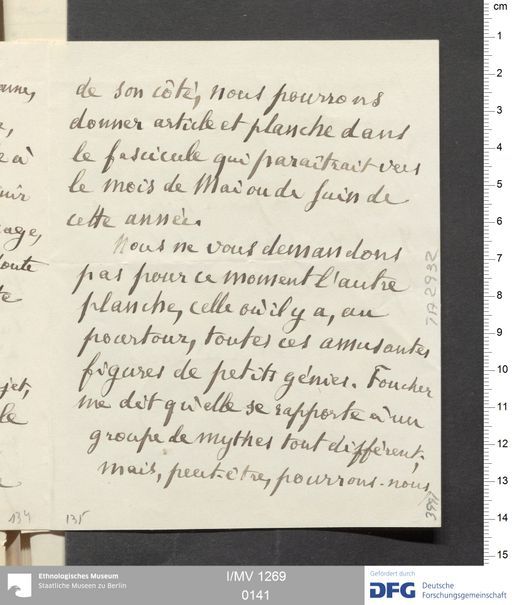 de son côté, nous pourrons
donner article et planche dans
le fascicule qui paraîtrait vers
le mois de Mai ou de Juin de
cette année.
Nous ne vous demandons
pas pour ce moment l'autre
planche, celle où il y a, au
pourtour, toutes ces amusantes
figures de petits génies. Foucher
me dit qu'elle se rapporte à un
groupe de mythes tout différent;
mais, peut-être, pourrons-nous
134
135
cm
1
2
3
4
5
6
7
8
9
10
11
12
13
14
15
Ethnologisches Museum
Staatliche Museen zu Berlin
I/MV 1269
0141
Gefördert durch
DFG
Deutsche
Forschungsgemeinschaft